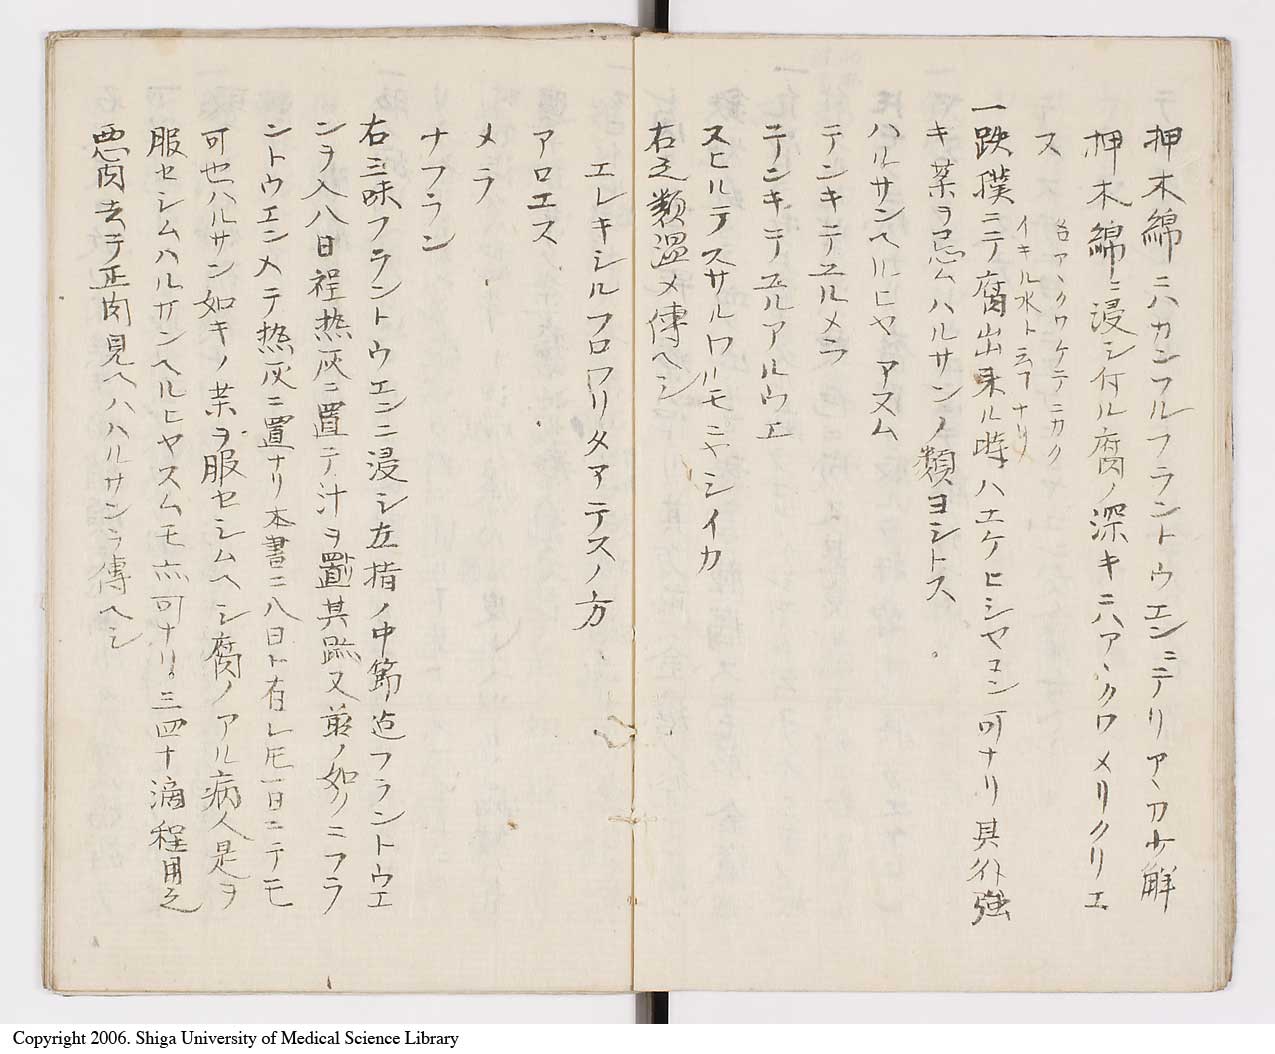 押木綿ニハカンフルフラントウエンニテリアヽカ少解
押木綿ニ浸シ付ル腐ノ深キニハアヽクワメリクリエ
ス
名アヽクワケテニカク
イキル水ト云フナリ
一跌撲ニテ腐出来ル時ハエケヒシヤコン可ナリ其外強
キ薬ヲ忌ムハルサンノ類ヨシトス
ハルサンヘルヒヤアスム
テンキテユルメラ
テンキテユルアルウエ
スヒルテスサルワルモニヤシイカ
右之類温メ傳ヘシ
エレキシルフロワリタアテスノ方
アロエス
メラ
ナフラン
右三味フラントウエンニ浸シ立指ノ中節迠フラントウエ
ンヲ入八日程热灰ニ置テ汁ヲ其跡又前ノ如クニフラ
ントウエンメテ热灰ニ置ナリ本書ニ八日ト有レ𪜈一日ニテモ
可也ハルサン如キノ薬ヲ服セシムヘシ腐ノアル病人是ヲ
服セシムハルサンヘルヒヤスムモ亦可ナリ三四十滴程用之
悪肉去テ正肉見ヘハハルサンヲ傳ヘシ
Copyright 2006. Shiga University of Medical Science Library